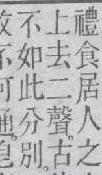 禮食居人之
上去二聲。古
不如此分别。
故不可通。皂